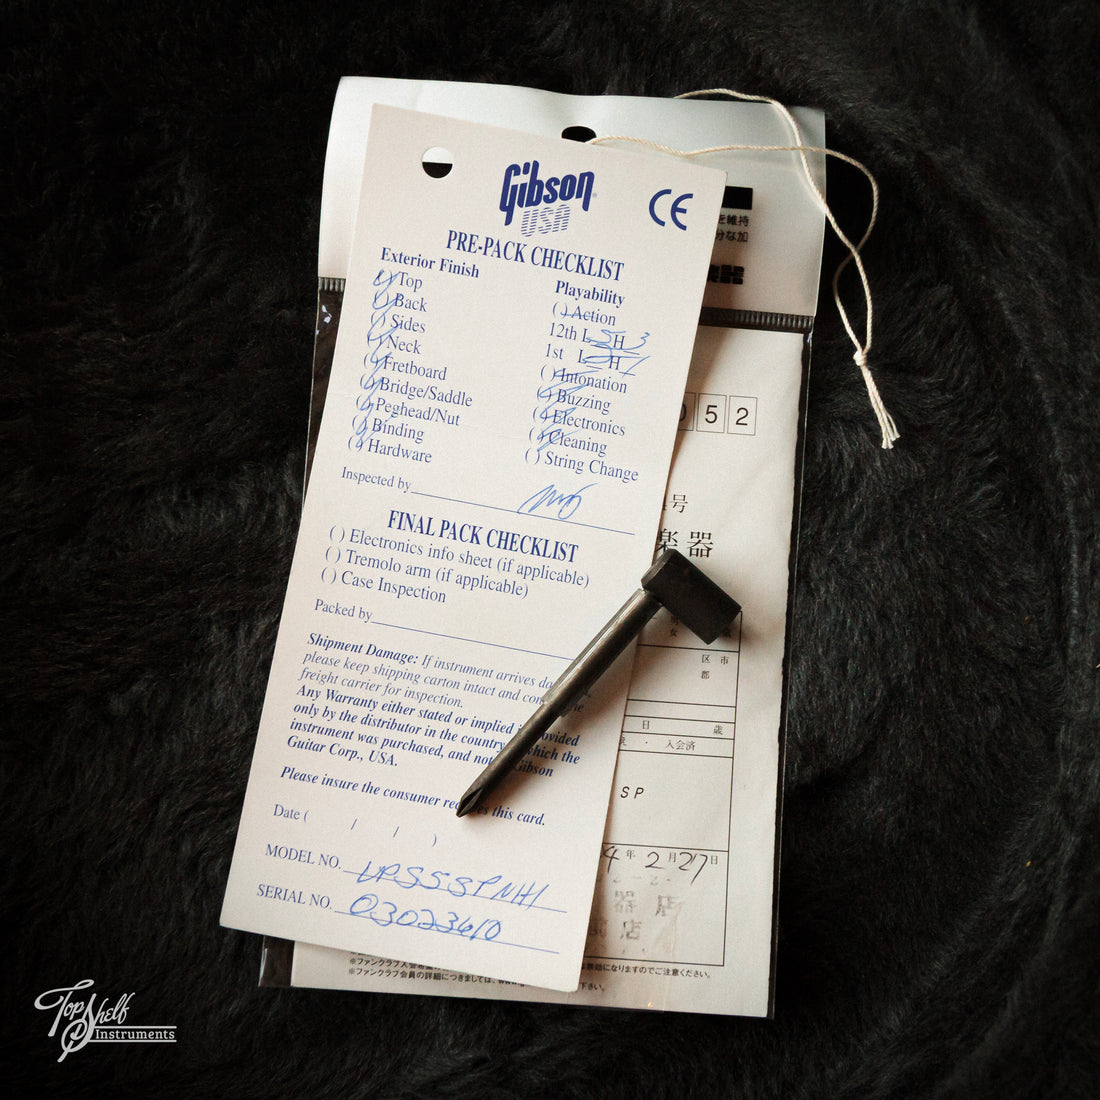 Gibson
USA
CE
PRE-PACK CHECKLIST
Exterior Finish
( ) Top
( ) Back
( ) Sides
( ) Neck
( ) Fretboard
( ) Bridge/Saddle
( ) Peghead/Nut
( ) Binding
( ) Hardware
Playability
( ) Action
12th L 5 H 3
1st L H 1
( ) Intonation
( ) Buzzing
( ) Electronics
( ) Cleaning
( ) String Change
Inspected by
FINAL PACK CHECKLIST
( ) Electronics info sheet (if applicable)
( ) Tremolo arm (if applicable)
( ) Case Inspection
Packed by
Shipment Damage: If instrument arrives
please keep shipping carton intact and
freight carrier for inspection.
Any Warranty either stated or implied
only by the distributor in the country which the
instrument was purchased, and not Gibson
Guitar Corp., USA.
Please insure the consumer this card.
Date ( / / )
MODEL NO. LPSSSPNH1
SERIAL NO. 03023610
を維持
分な加
052
号
楽器
男
女
歳
区 市
郡
日 歳
・ 入会済
SP
4年2月27日
器 店
店
無効になりますのでご注意ください。
※ファンクラブ会員の詳細につきましては、
下さい。
Top Shelf
Instruments